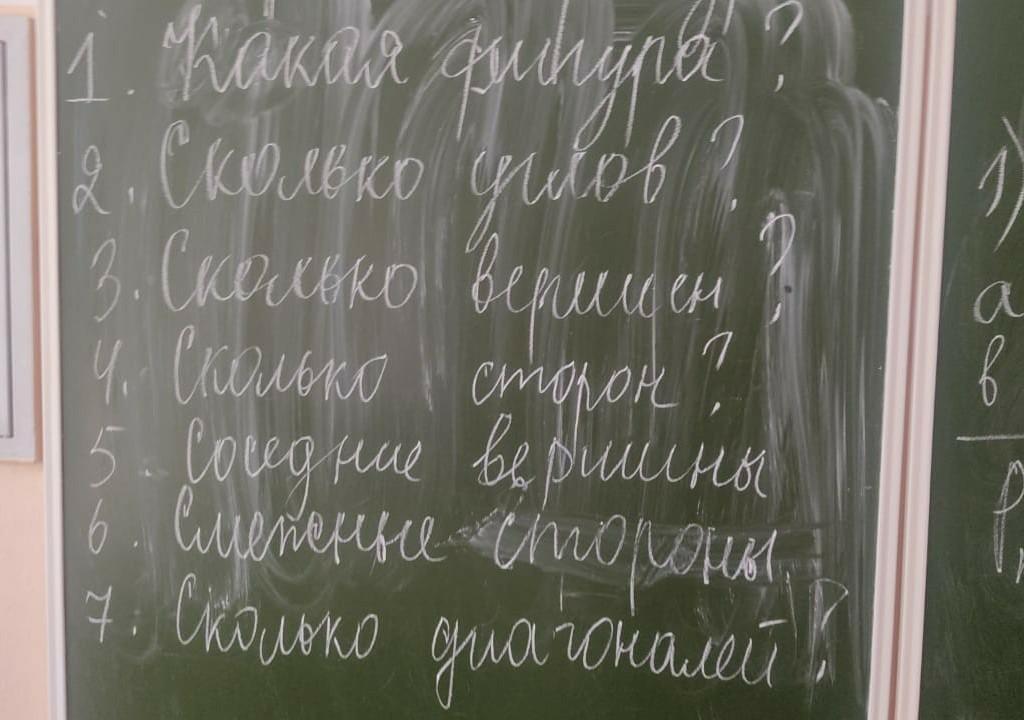 1. Какая фигура?
2. Сколько углов?
3. Сколько вершин?
4. Сколько сторон?
5. Соседние вершины
6. Смежные стороны
7. Сколько диагоналей?
1)
а
в
Р